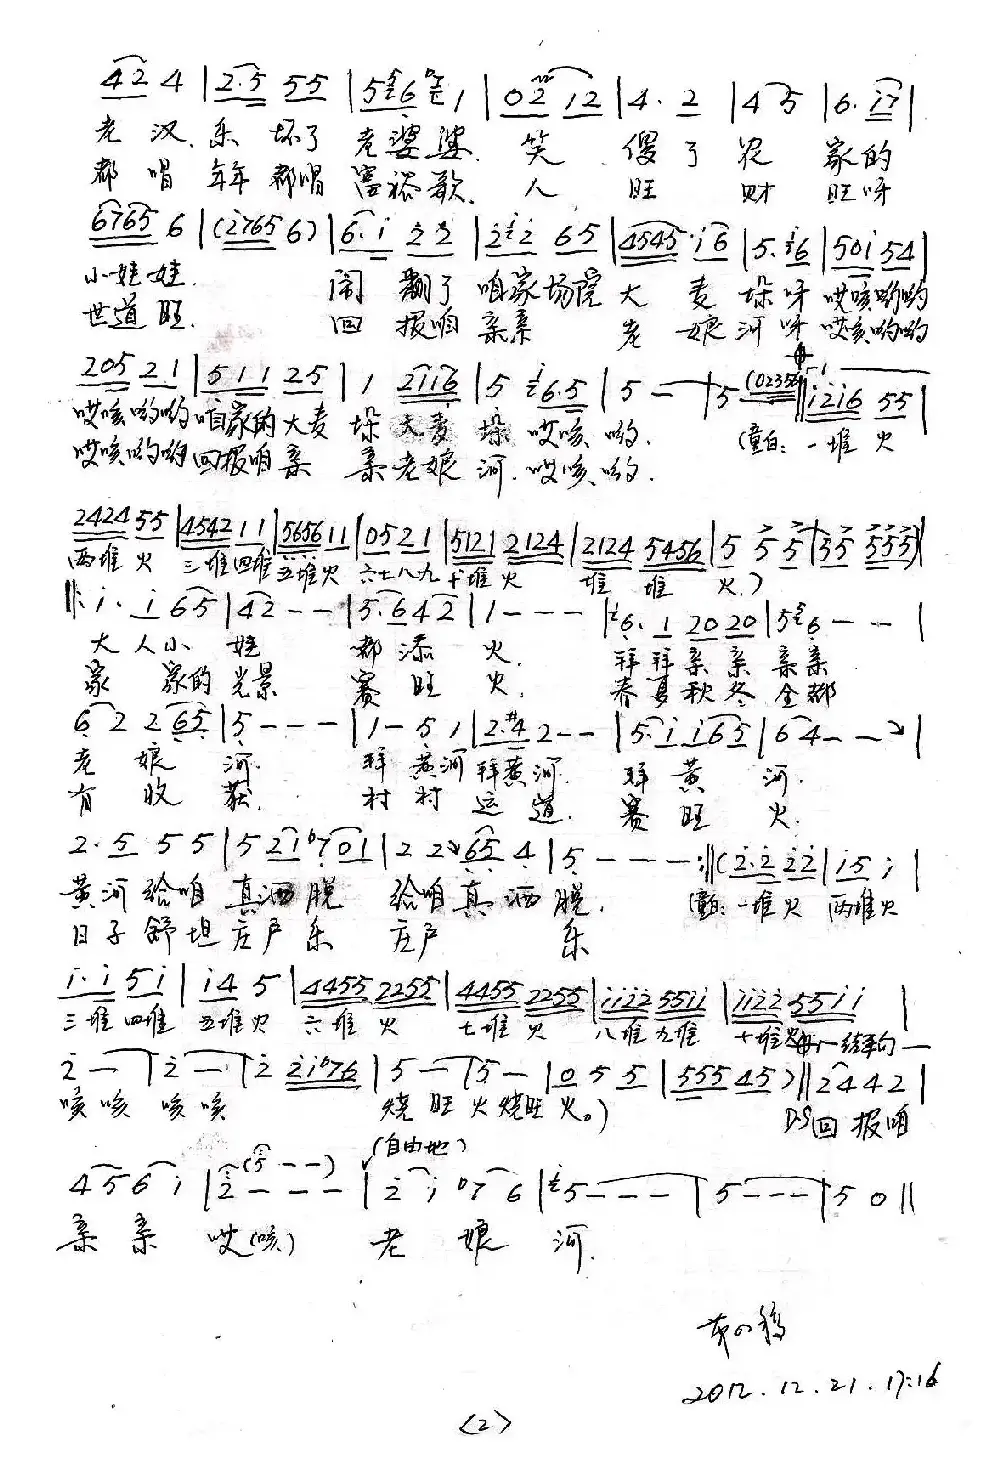 4 2 4 | 2·5 5 5 | 5 6 1 | 0 2 1 2 | 4· 2 | 4 5 | 6· i 7 |
老汉乐坏了老婆婆 笑傻了农家的
都唱年年都唱富裕歌 人旺财旺呀
6765 6 | (2765 6) | 6· i 2 2 | 2 2 6 5 | 4545· i 6 | 5· i 6 | 50i 54 |
小娃娃 闹翻了咱家场院大麦垛呀哎咳哟哟
世道旺 回报咱亲亲老娘河呀哎咳哟哟
205 21 | 511 25 | 1 2116 | 5 6·5 | 5 — | 5 (0235 | i2i6 55 |
哎咳哟哟咱家的大麦垛大麦垛哎咳哟. (童白:一堆火
哎咳哟哟回报咱亲亲老娘河.哎咳哟.
2424 55 | 4542 11 | 5656 11 | 05 21 | 5121 2124 | 2124 5456 | 5 5 5 | 55 555 |
两堆火 三堆四堆五堆火 六七八九十堆火 堆堆火)
i· i 6 5 | 4 2 - - | 5·6 4 2 | 1 - - - | 6· 1 20 20 | 5 6 - - |
大人小娃都添火. 拜拜亲亲亲亲
家家的光景赛旺火. 春夏秋冬全都
6 2 2 6 5 | 5 - - - | 1 - 5 1 | 2·#4 2 - - | 5· i i 6 5 | 6 4 - - |
老娘河. 拜黄河拜黄河. 拜黄河.
有收获. 村村运道. 赛旺火.
2· 5 5 5 | 5 2 i 7 0 1 | 2 2 6 5 4 | 5 - - - :‖ (2·2 22 | i 5 i |
黄河给咱真洒脱 给咱真洒脱. (童白:一堆火 两堆火
日子舒坦庄户乐 庄户乐
i· i 5 i | i 4 5 | 4455 2255 | 4455 2255 | ii22 55ii | ii22 55ii |
三堆四堆 五堆火 六堆火 七堆火 八堆九堆 十堆火
结束句
2 — | 2 — | 2 2i76 | 5 — | 5 — | 0 5 5 | 555 45) ‖ 2 4 4 2 |
咳咳咳 烧旺火烧旺火。) D.S回报咱
(自由地)
4 5 6 i | 2 - - - (5 - -) | 2 i 7 6 | 5 - - - | 5 - - - | 5 0 ‖
亲亲哎(咳) 老娘河.
2012.12.21.17:16
(2)